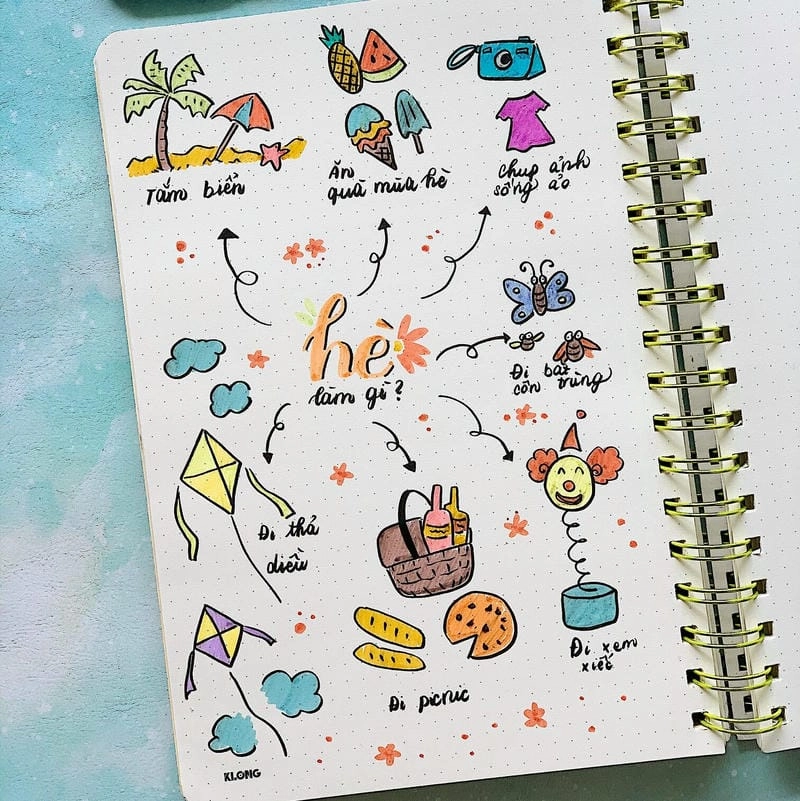 Tắm biển
Ăn
quà mùa hè
chụp ảnh
sống ảo
hè
làm gì?
Đi bắt
côn trùng
Đi thả
diều
Đi xem
xiếc
Đi picnic
KLONG